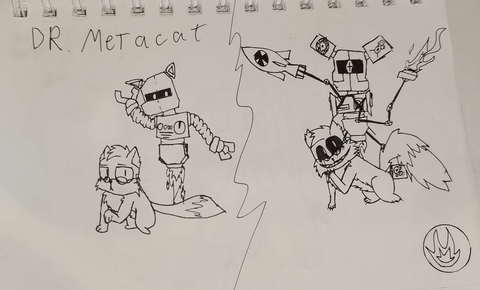 DR. MeTacat